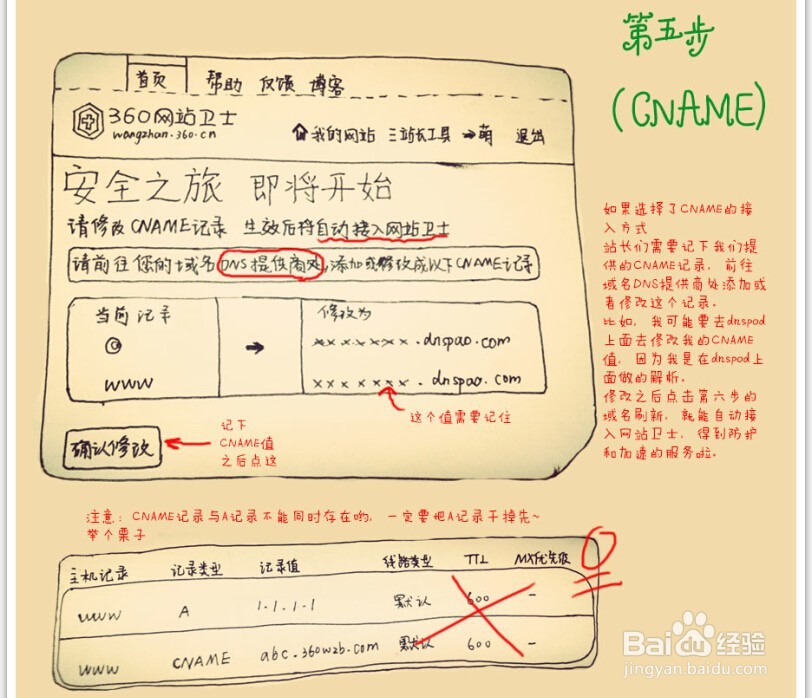 第五步
(CNAME)
首页 帮助 反馈 博客
360网站卫士
wangzhan.360.cn
我的网站 站长工具 萌 退出
安全之旅 即将开始
请修改CNAME记录 生效后将自动接入网站卫士
请前往您的域名DNS提供商处,添加或修改成以下CNAME记录
当前记录 修改为
@ xxxxxxx.dnspao.com
www xxxxxxx.dnspao.com
这个值需要记住
确认修改
记下
CNAME值
之后点这
如果选择了CNAME的接
入方式
站长们需要记下我们提
供的CNAME记录，前往
域名DNS提供商处添加或
者修改这个记录。
比如，我可能要去dnspod
上面去修改我的CNAME
值，因为我是在dnspod上
面做的解析。
修改之后点击第六步的
域名刷新，就能自动接
入网站卫士，得到防护
和加速的服务啦。
注意：CNAME记录与A记录不能同时存在哟，一定要把A记录干掉先~
举个栗子
主机记录 记录类型 记录值 线路类型 TTL MX优先级
www A 1.1.1.1 默认 600 -
www CNAME abc.360wzb.com 默认 600 -
Baidu经验
jingyan.baidu.com